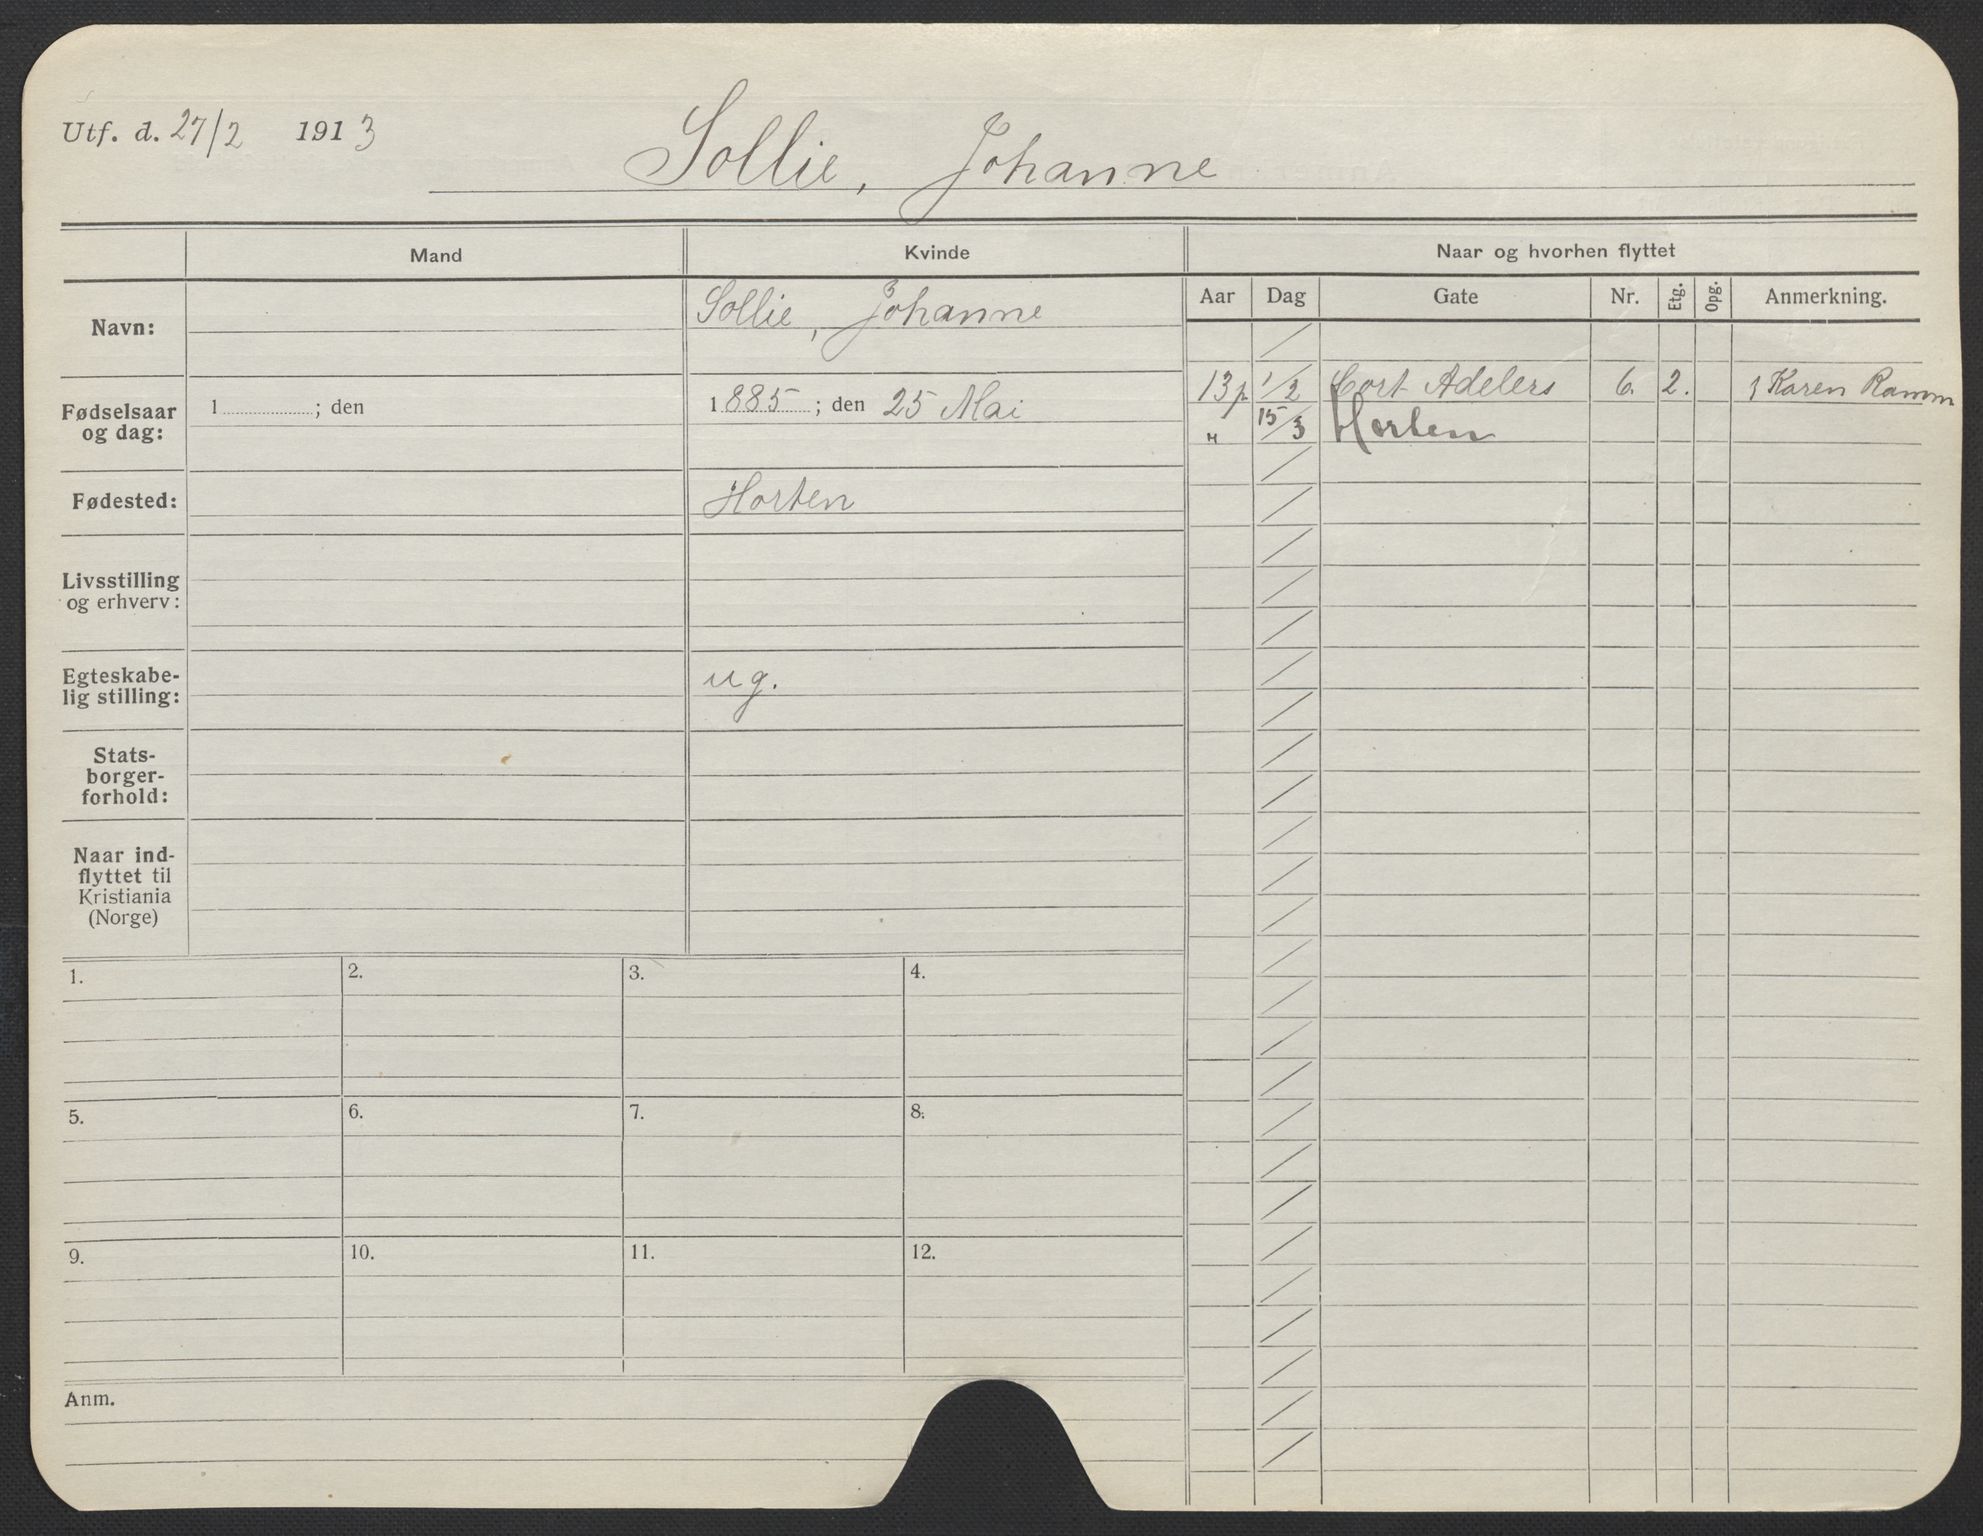 Utf. d. 27/2 1913
Sollie, Johanne
Mand Kvinde Naar og hvorhen flyttet
Aar Dag Gate Nr. Etg. Opg. Anmerkning.
Navn: Sollie, Johanne
Fødselsaar og dag: 1 ; den 1885 ; den 25 Mai
13 1/2 Cort Adelers 6. 2. Karen Ramm
" 15/3 Horten
Fødested: Horten
Livsstilling
og erhverv:
Egteskabe-
lig stilling: ug.
Stats-
borger-
forhold:
Naar ind-
flyttet til
Kristiania
(Norge)
1. 2. 3. 4.
5. 6. 7. 8.
9. 10. 11. 12.
Anm.